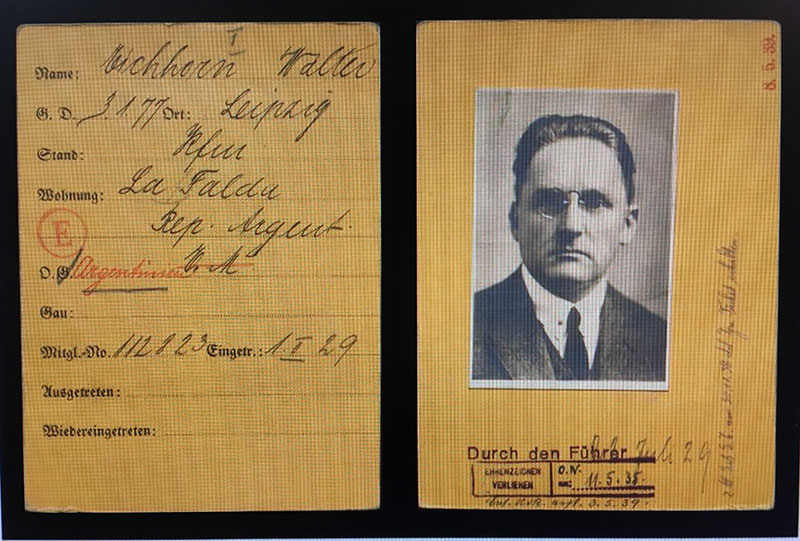 I
Name: Eichhorn Walter
G. D. 3.1.77 Ort: Leipzig
Stand: Kfm
Wohnung: La Falda
Rep. Argent.
E
O.G. Argentinien
Gau:
Mitgl.-No. 112823 Eingetr.: 1 I 29
Ausgetreten:
Wiedereingetreten:
8. 5. 39.
Durch den Führer
29
EHRENZEICHEN
VERLIEHEN
O.N. 11.5.35.
3.5.39.